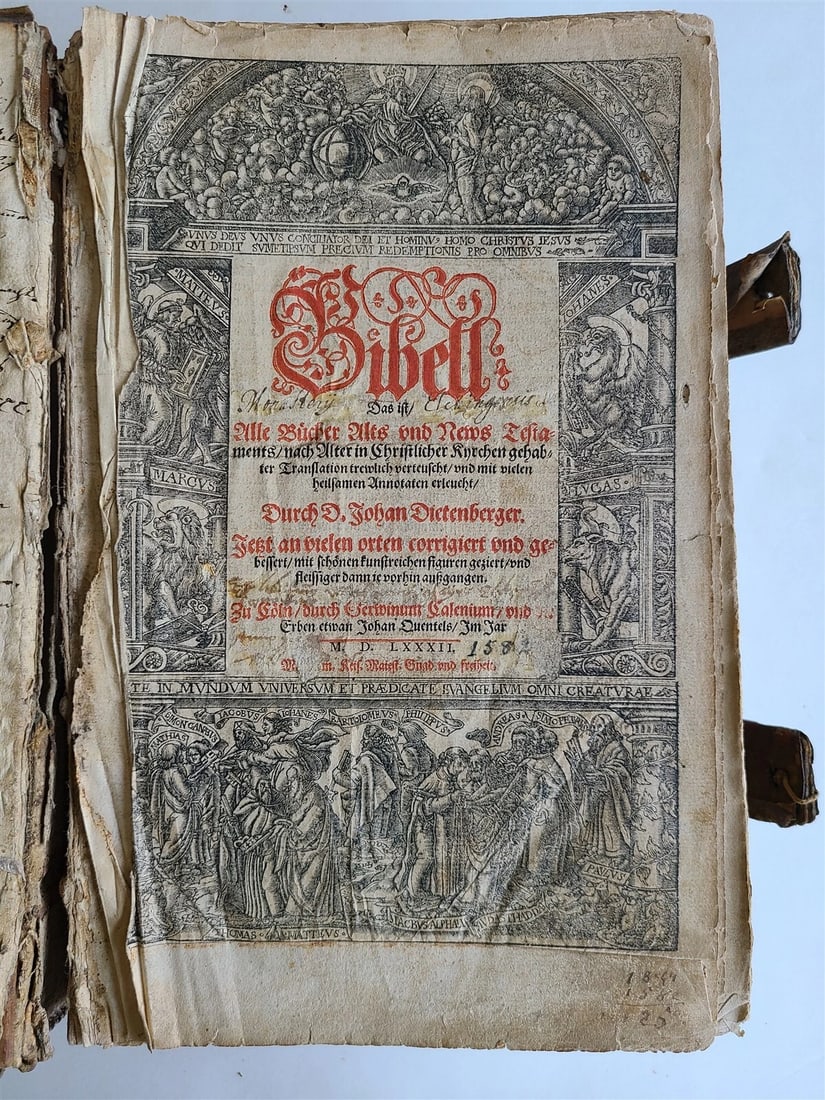 VNVS DEVS VNVS CONCILIATOR DEI ET HOMINVM HOMO CHRISTVS IESVS
QVI DEDIT SVMETIPSVM PRECIVM REDEMPTIONIS PRO OMNIBVS
MATTEVS
IOHANES
Bibell
Das ist/
Alle Bücher Alts vnd News Testa-
ments/nach Alter in Christlicher Kyrchen gehab-
ter Translation trewlich verteuscht/vnd mit vielen
heilsamen Annotaten erleucht/
Durch D. Johan Dietenberger.
Jetzt an vielen orten corrigiert vnd ge-
bessert/mit schönen kunstreichen figuren geziert/vnd
fleissiger dann ie vorhin außgangen.
Zu Cöln/durch Gerwinum Calenium/vnd
Erben etwan Johan Quentels/Im Jar
M. D. LXXXII. 1582
Keis. Maiest. Gnad. vnd freiheit.
MARCVS
LVCAS
TE IN MVNDVM VNIVERSVM ET PRÆDICATE EVANGELIVM OMNI CREATVRAE
MATHIAS
SIMON CANNEVS
IACOBVS
IOHANES
BARTOLOMEVS
PHILIPPVS
ANDREAS
SIMO PETRVS
PAVLVS
THOMAS
MATTEVS
IACBVS ALPHAEI